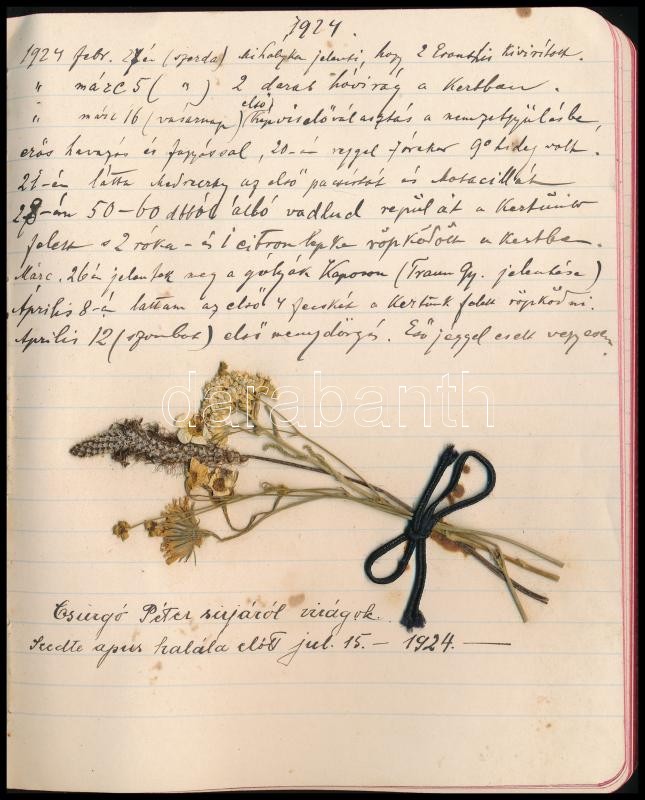 1924.
1924 febr. 27én (szerda) Mihályka jelenti, hogy 2 Eranthis kivirított.
" márc 5 ( " ) 2 darab hóvirág a kertben.
" márc 16 (vasárnap) első képviselőválasztás a nemzetgyűlésbe,
erős havazás és fagyással, 20-án reggel 7 órakor 9° hideg volt.
21-én látta Medreczky az első pacsirtát és Motacillát
28-án 50-60 dbból álló vadlud repül át a kertünk
felett s 2 róka - és 1 citromlepke röpködött a kertben.
Márc. 26án jelentek meg a gólyák Kaposon (Traun Gy. jelentése)
Április 8-án láttam az első 4 fecskét a kertünk felett röpködni.
Április 12 (szombat) első menydörgés. Eső jéggel esett vegyesen.
darabanth
Csurgó Péter sirjáról virágok.
Szedte apus halála előtt jul. 15. - 1924. -